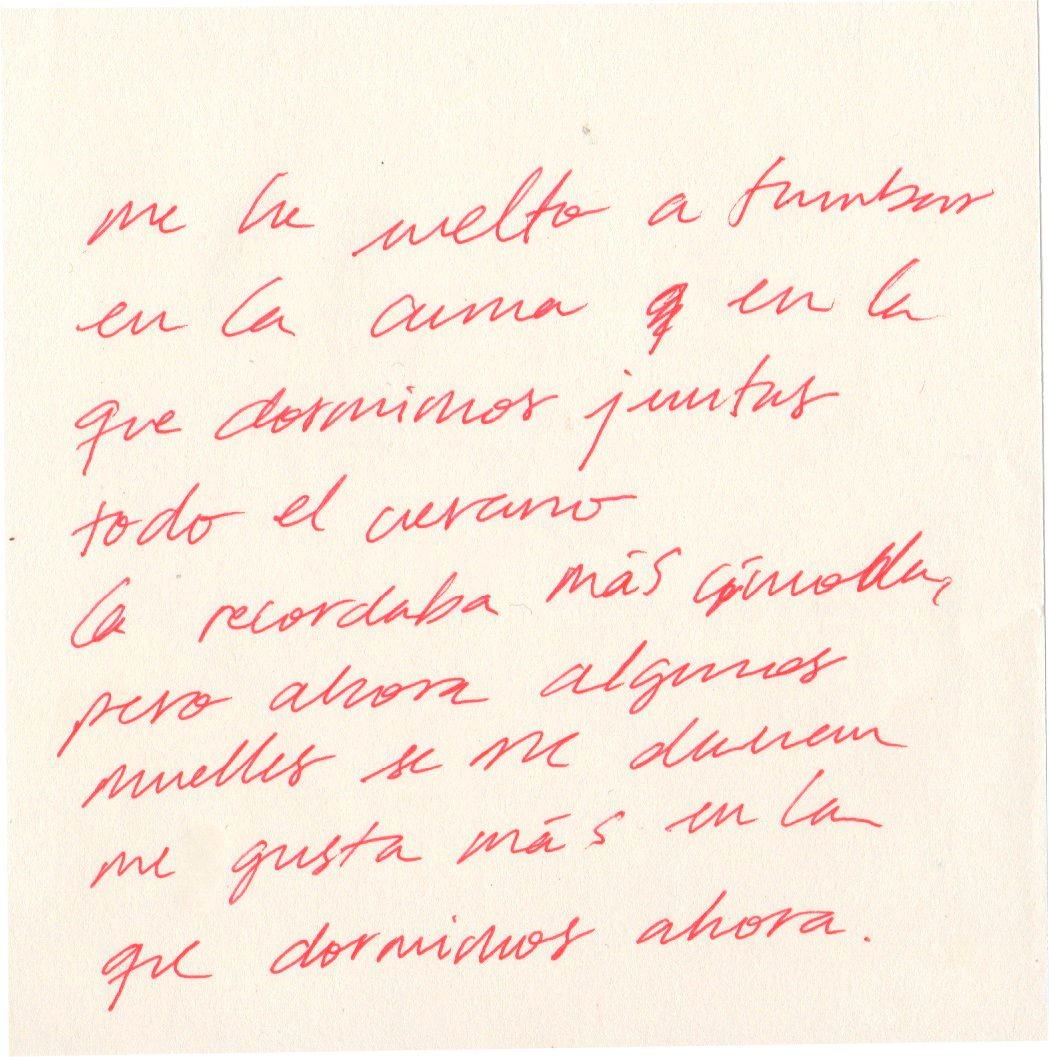 me he vuelto a tumbar
en la cama en la
que dormimos juntas
todo el verano
la recordaba más cómoda,
pero ahora algunos
muelles se me clavan
me gusta más en la
que dormimos ahora.